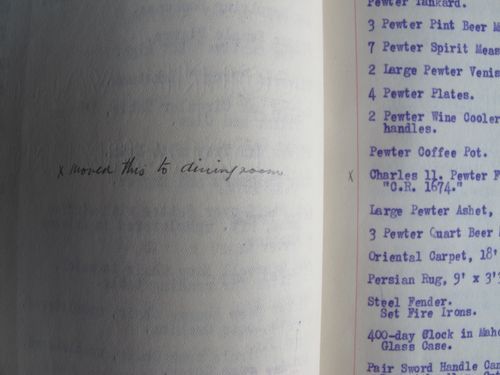 x moved this to dining room
Pewter Tankard.
3 Pewter Pint Beer
7 Pewter Spirit
2 Large Pewter
4 Pewter Plates.
2 Pewter Wine Cooler
handles.
Pewter Coffee Pot.
x Charles 11. Pewter
"C.R. 1674."
Large Pewter Ashet,
3 Pewter Quart Beer
Oriental Carpet, 18'
Persian Rug, 9' x 3'
Steel Fender.
Set Fire Irons.
400-day Clock in
Glass Case.
Pair Sword Handle